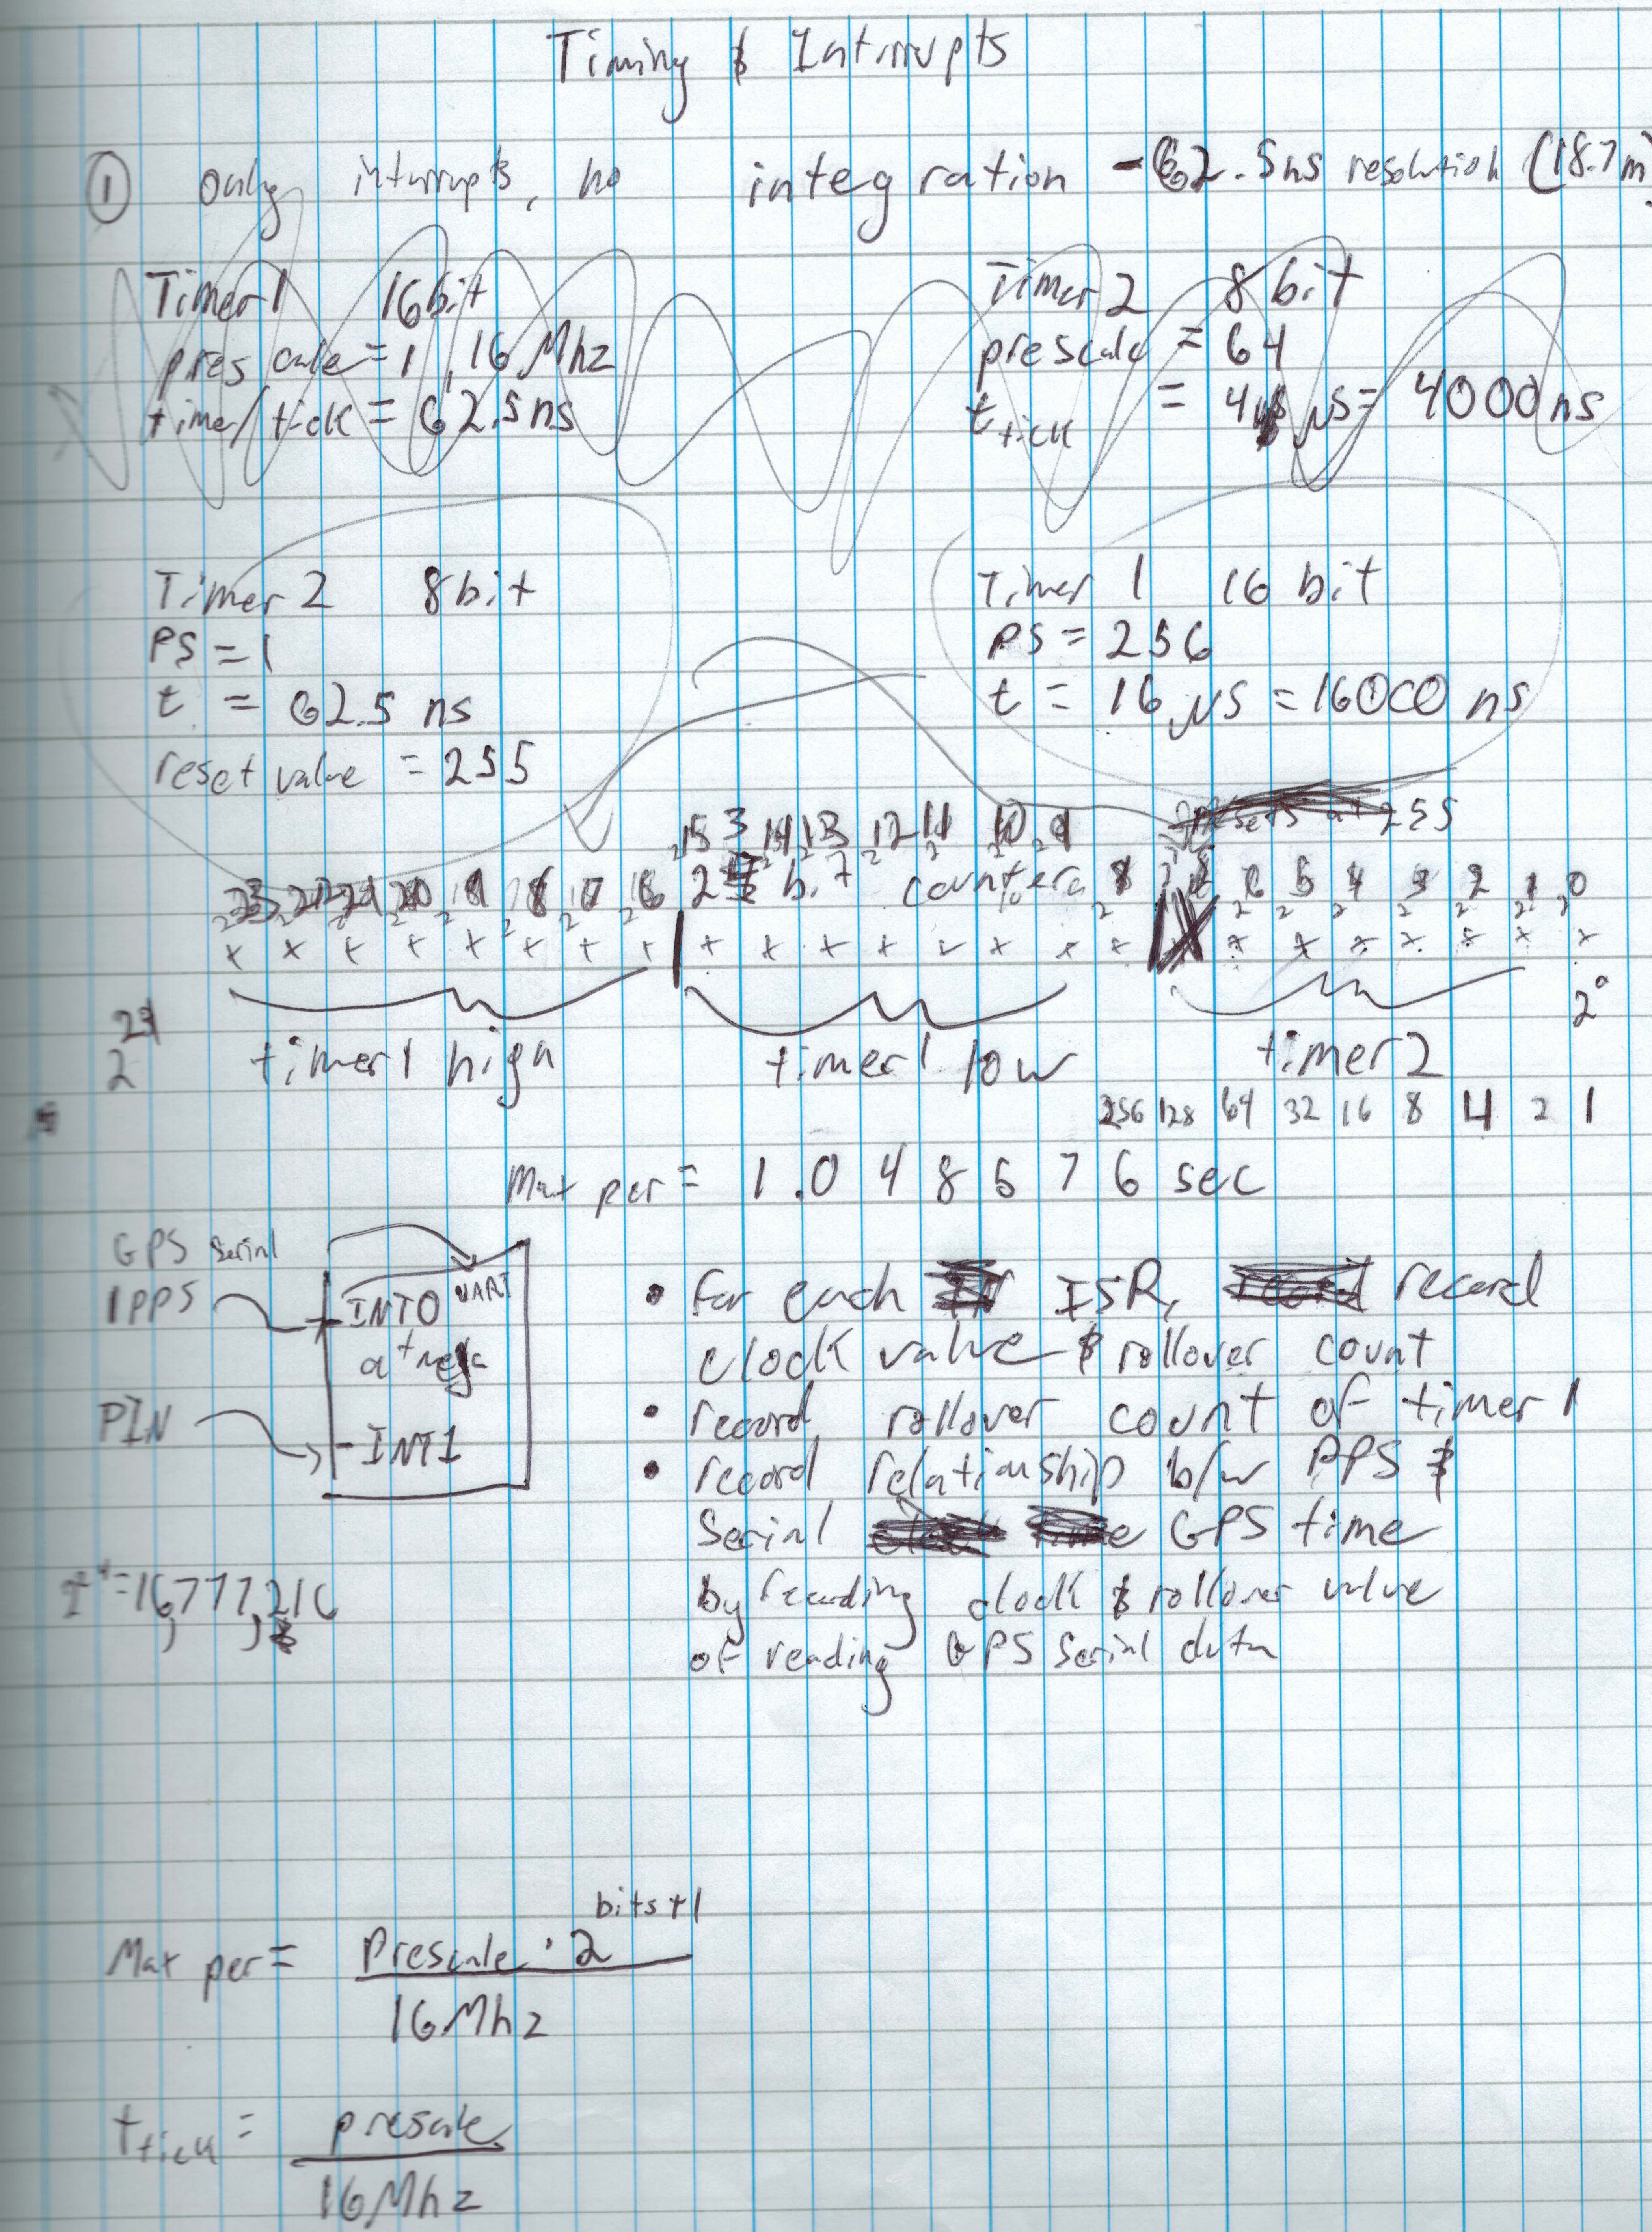 Timing & Intrrupts
① only interrupts, no integration - 62.5ns resolution (18.7m)
Timer 1 16bit
prescale = 1, 16 Mhz
time/tick = 62.5ns
Timer 2 8 bit
prescale = 64
t tick = 4 µs = 4000 ns
Timer 2 8bit
PS = 1
t = 62.5 ns
reset value = 255
Timer 1 16 bit
PS = 256
t = 16 µs = 16000 ns
resets at 255
bit counter
2^23 2^22 2^21 2^20 2^19 2^18 2^17 2^16 2^15 2^14 2^13 2^12 2^11 2^10 2^9 2^8 2^7 2^6 2^5 2^4 2^3 2^2 2^1 2^0
x x x x x x x x | x x x x x x x x | x x x x x x x
2^0
timer1 high timer1 low timer2
256 128 64 32 16 8 4 2 1
Max per = 1.048576 sec
GPS Serial
1PPS
INT0 UART
atmega
PIN
- INT1
• For each ISR, record
clock value & rollover count
• record rollover count of timer 1
• record relationship b/w PPS &
Serial GPS time
by recording clock & rollover value
of reading GPS Serial data
2^24 = 16,777,216
Max per = Prescale · 2^bits+1 / 16Mhz
t tick = prescale / 16Mhz